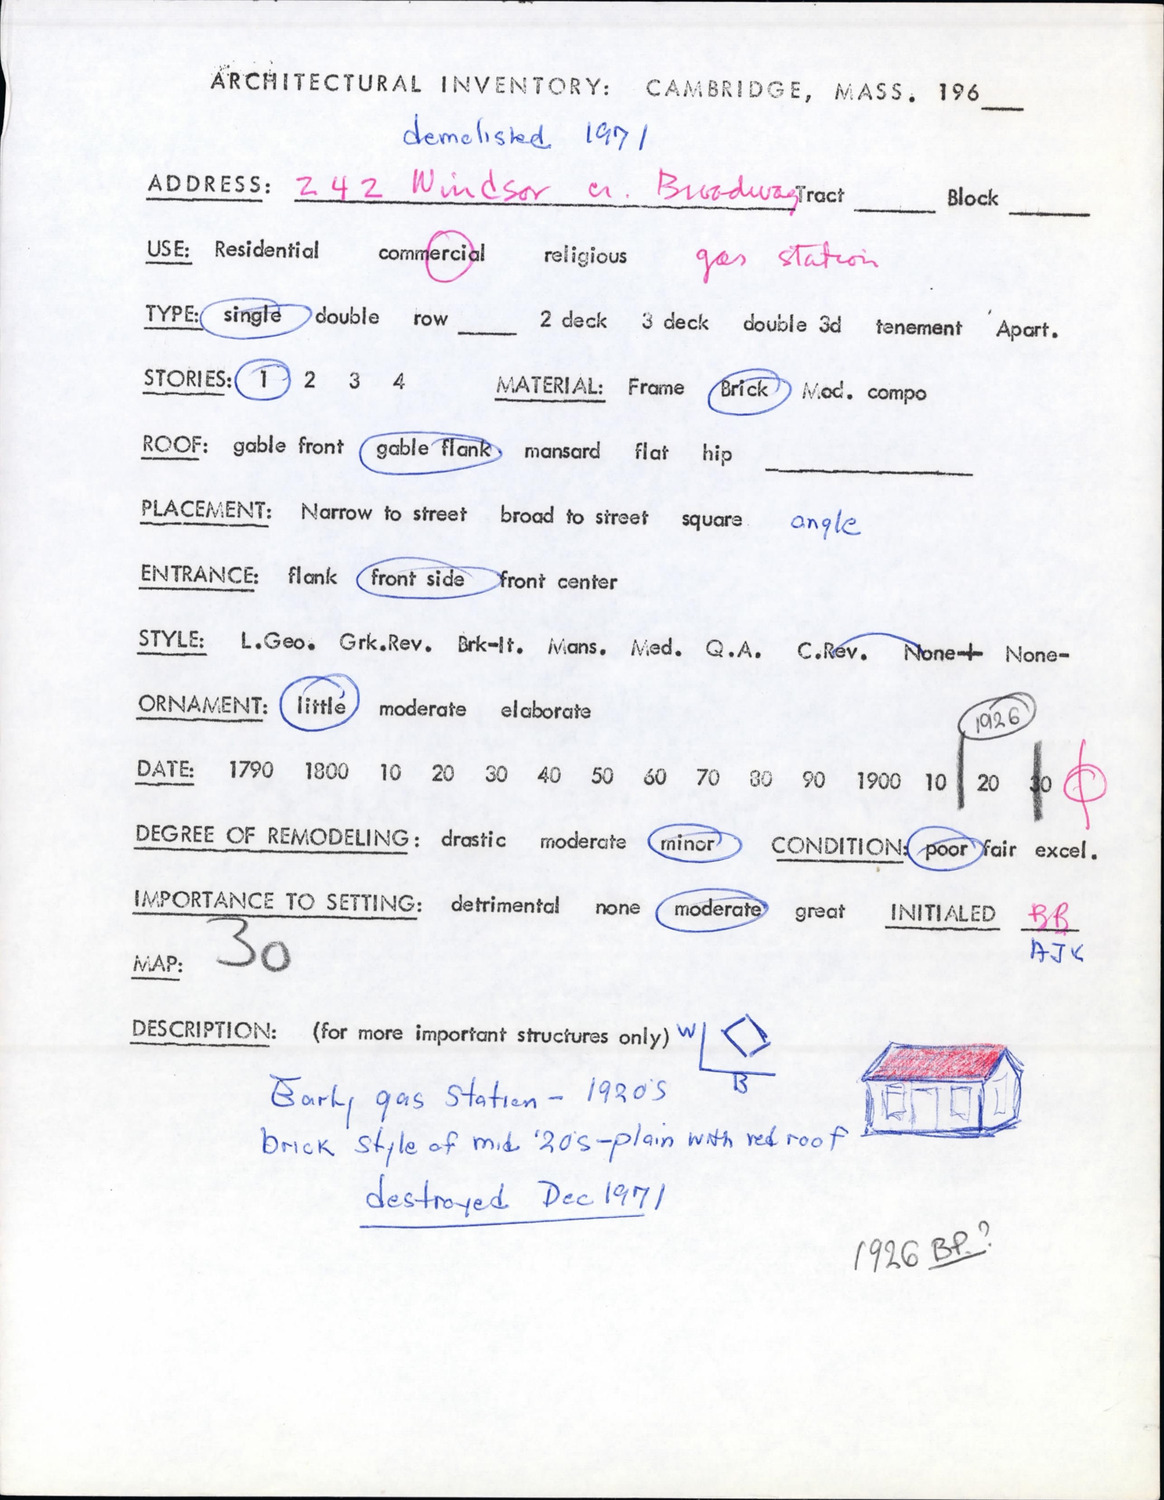 ARCHITECTURAL INVENTORY: CAMBRIDGE, MASS. 196__
demolished 1971
ADDRESS: 242 Windsor cr. Broadway Tract ____ Block ____
USE: Residential commercial religious gas station
TYPE: single double row ____ 2 deck 3 deck double 3d tenement Apart.
STORIES: 1 2 3 4 MATERIAL: Frame Brick Mod. compo
ROOF: gable front gable flank mansard flat hip ____
PLACEMENT: Narrow to street broad to street square angle
ENTRANCE: flank front side front center
STYLE: L.Geo. Grk.Rev. Brk-It. Mans. Med. Q.A. C.Rev. None+ None-
ORNAMENT: little moderate elaborate
1926
DATE: 1790 1800 10 20 30 40 50 60 70 80 90 1900 10 20 30
DEGREE OF REMODELING: drastic moderate minor CONDITION: poor fair excel.
IMPORTANCE TO SETTING: detrimental none moderate great INITIALED BB
AJK
MAP: 30
DESCRIPTION: (for more important structures only) W
B
Early gas Station - 1920's
brick style of mid '20's - plain with red roof
destroyed Dec 1971
1926 BP.?